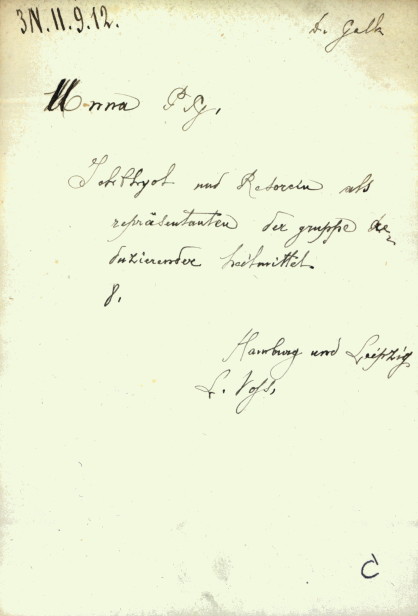 3N.11.9.12.
D. Galk
Unna P. G.,
Ichthyol und Resorcin als
repräsentanten der gruppe Re-
duzierender heilmittel.
8.
Hamburg und Leipzig
L. Voss,
C